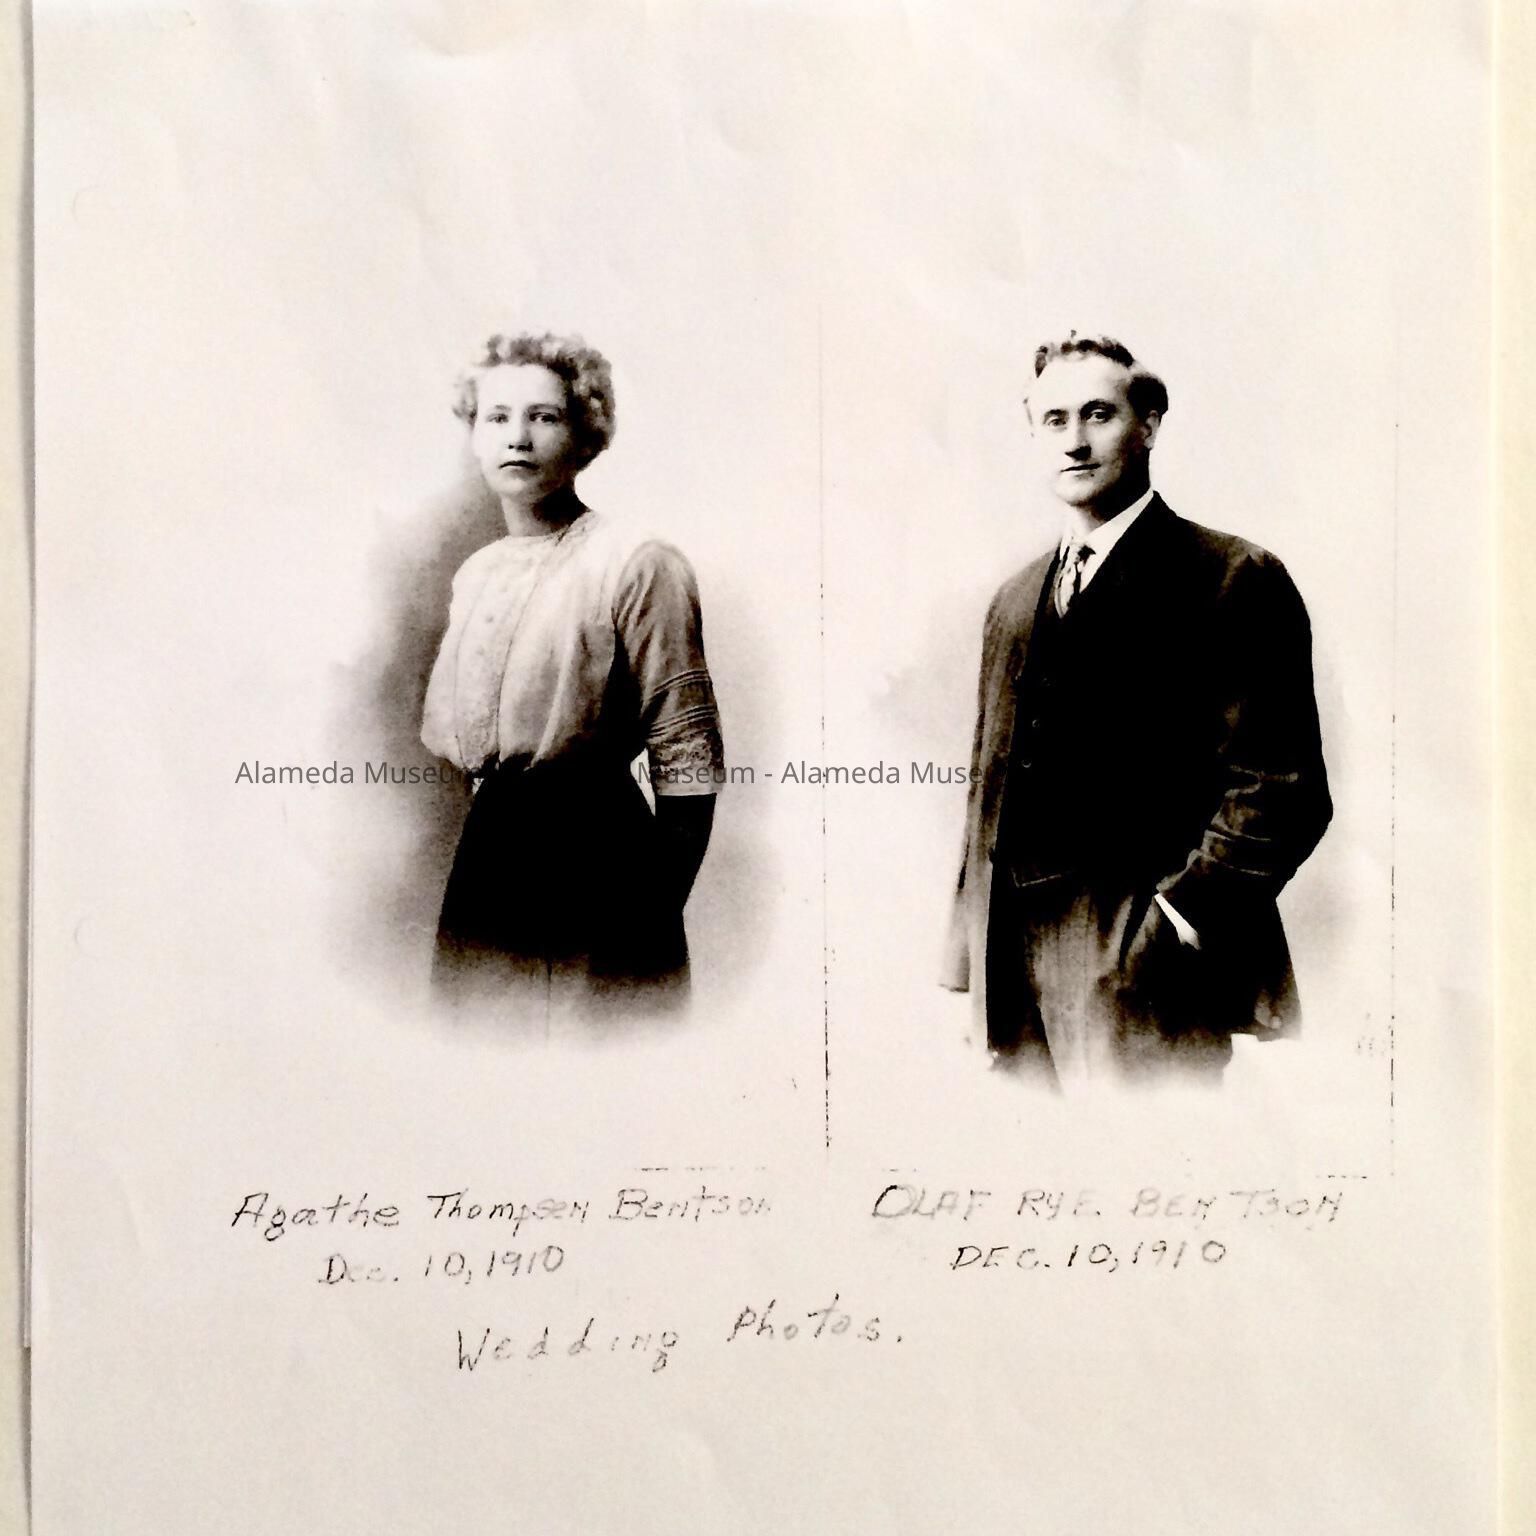 Alameda Museum Museum - Alameda Museu
Agathe Thompsen Bentson
Dec. 10, 1910
OLAF RYE. BENTSON
DEC. 10, 1910
Wedding Photos.